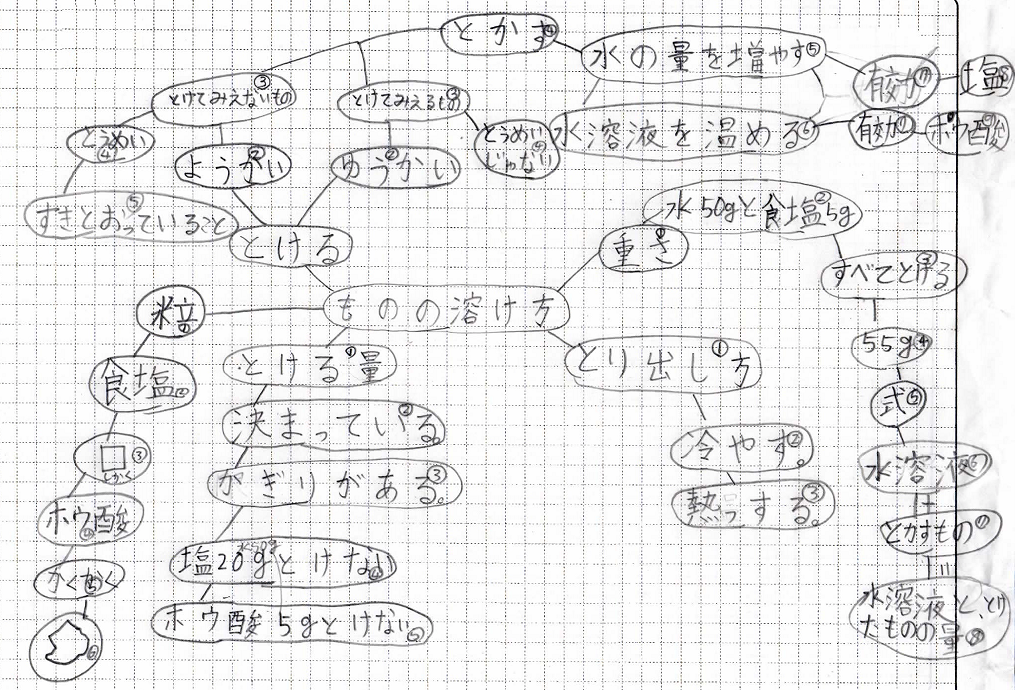 とかす④
水の量を増やす⑤
有効⑦
塩⑧
水溶液を温める⑥
有効⑦
ホウ酸⑧
とけてみえないもの③
とけてみえるもの③
とうめい④
とうめい
じゃない
ようかい②
ゆうかい②
すきとおっていること⑤
とける
ものの溶け方
重さ①
水50gと食塩5g②
すべてとける③
55g④
式⑤
水溶液⑥
+
とかすもの⑦
=
水溶液と、とけ
たものの量⑧
粒①
食塩②
□③
しかく
ホウ酸④
かくかく⑤
⑥
とける量①
決まっている②
かぎりがある。③
塩20gとけない④
ホウ酸5gとけない⑤
とり出し方①
冷やす。②
熱っする。③